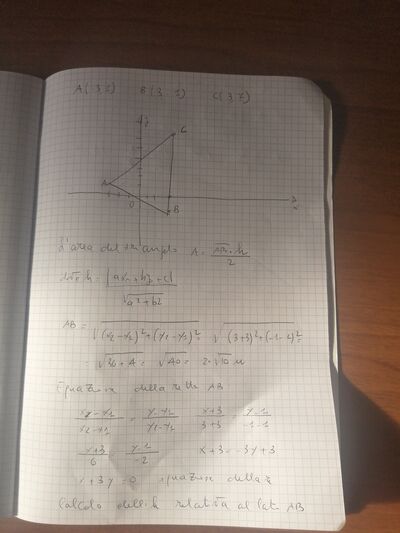 A(-3,1) B(3,-1) C(3,7)
y
C
A
O
B
x
L'area del triangolo A = AB·h / 2
dove h = |ax₀+by₀+c| / √a²+b²
AB = √(x₂-x₁)²+(y₂-y₁)² = √(3+3)²+(-1-1)² =
= √36+4 = √40 = 2·√10 u
Equazione della retta AB
x-x₁ / x₂-x₁ = y-y₁ / y₂-y₁ x+3 / 3+3 = y-1 / -1-1
x+3 / 6 = y-1 / -2 x+3 = -3y+3
x+3y=0 equazione della r
Calcolo dell'h relativa al lato AB